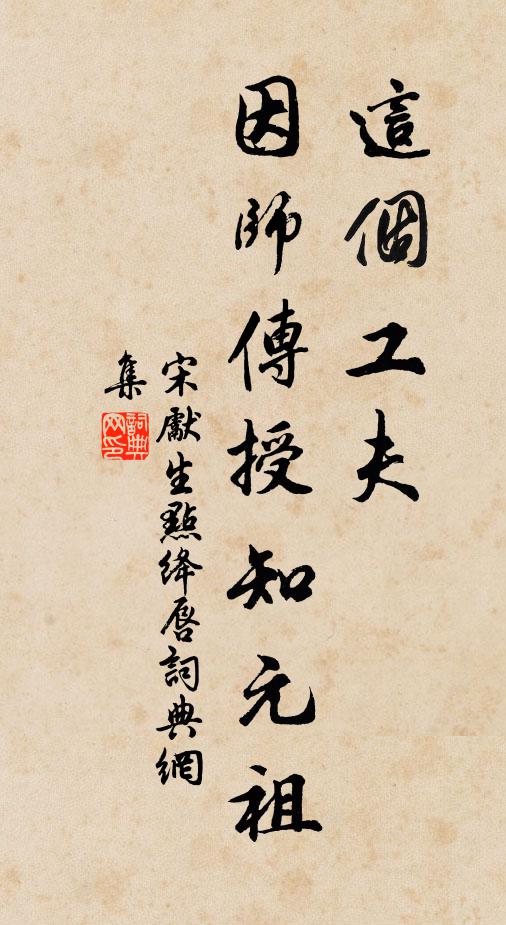 這個工夫
因師傳授知元祖
宋獻生點絳唇詞典網
集
詞典網印